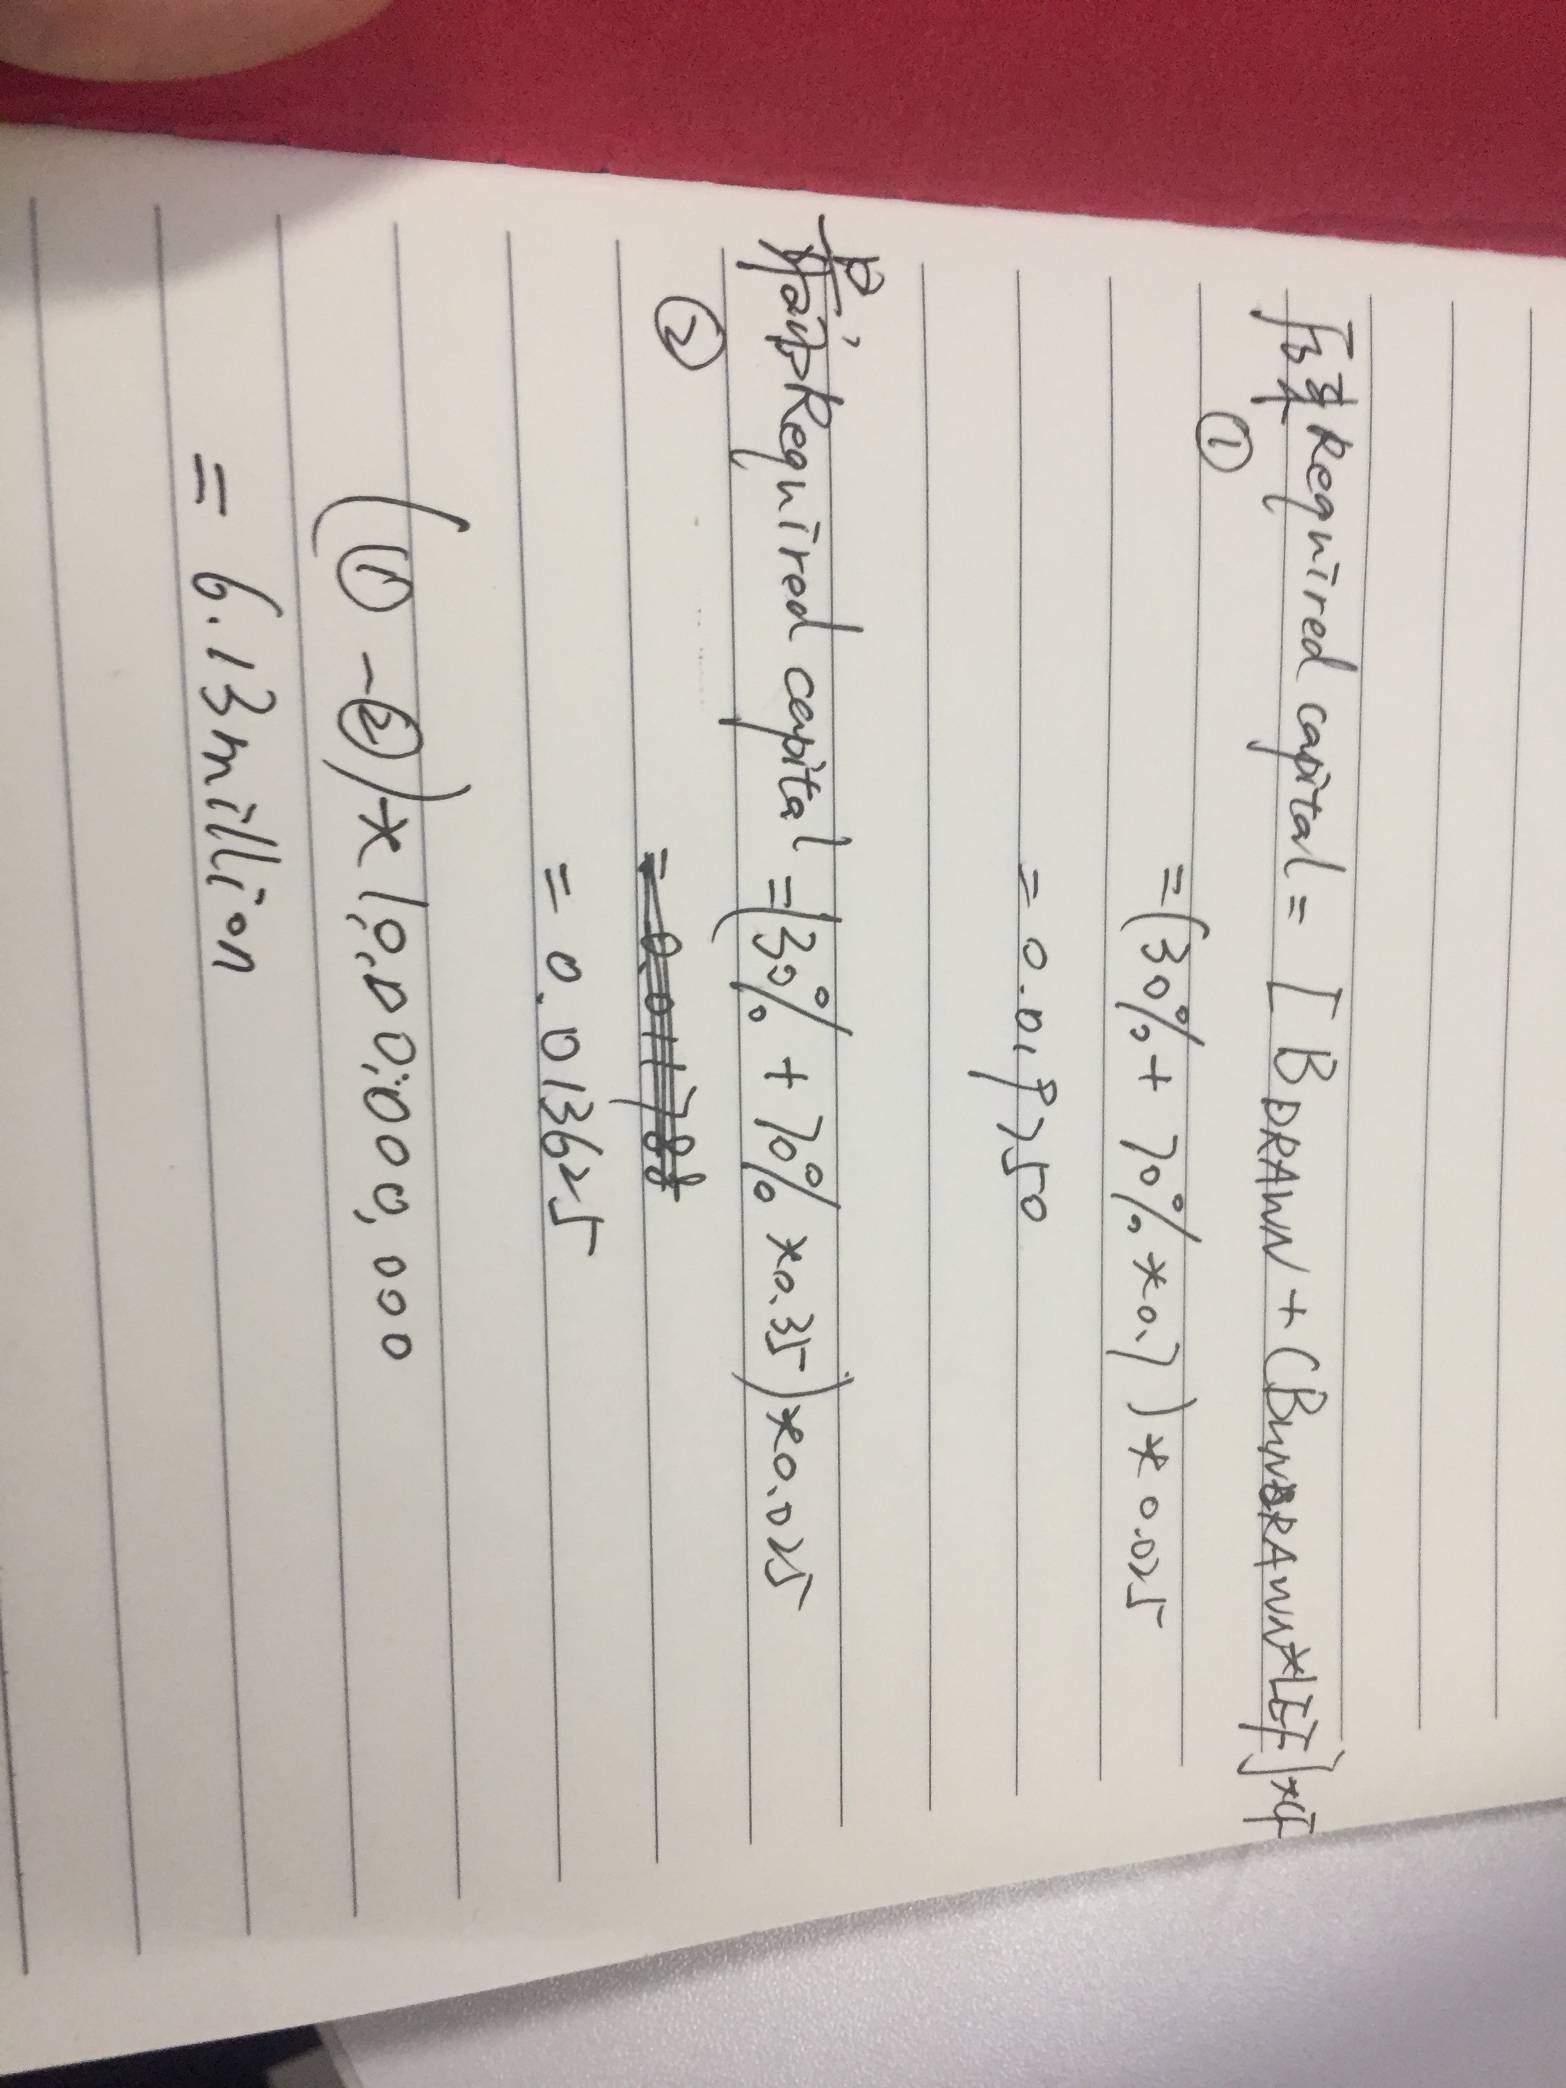 Required capital = [BDRAWN + (BUNDRAWN*LEF]*CF
①
= (30% + 70% * 0.7) * 0.025
= 0.019750
Required capital = (30% + 70% × 0.35) * 0.025
②
= 0.013625
(① - ②) * 1,000,000,000
= 6.13 million